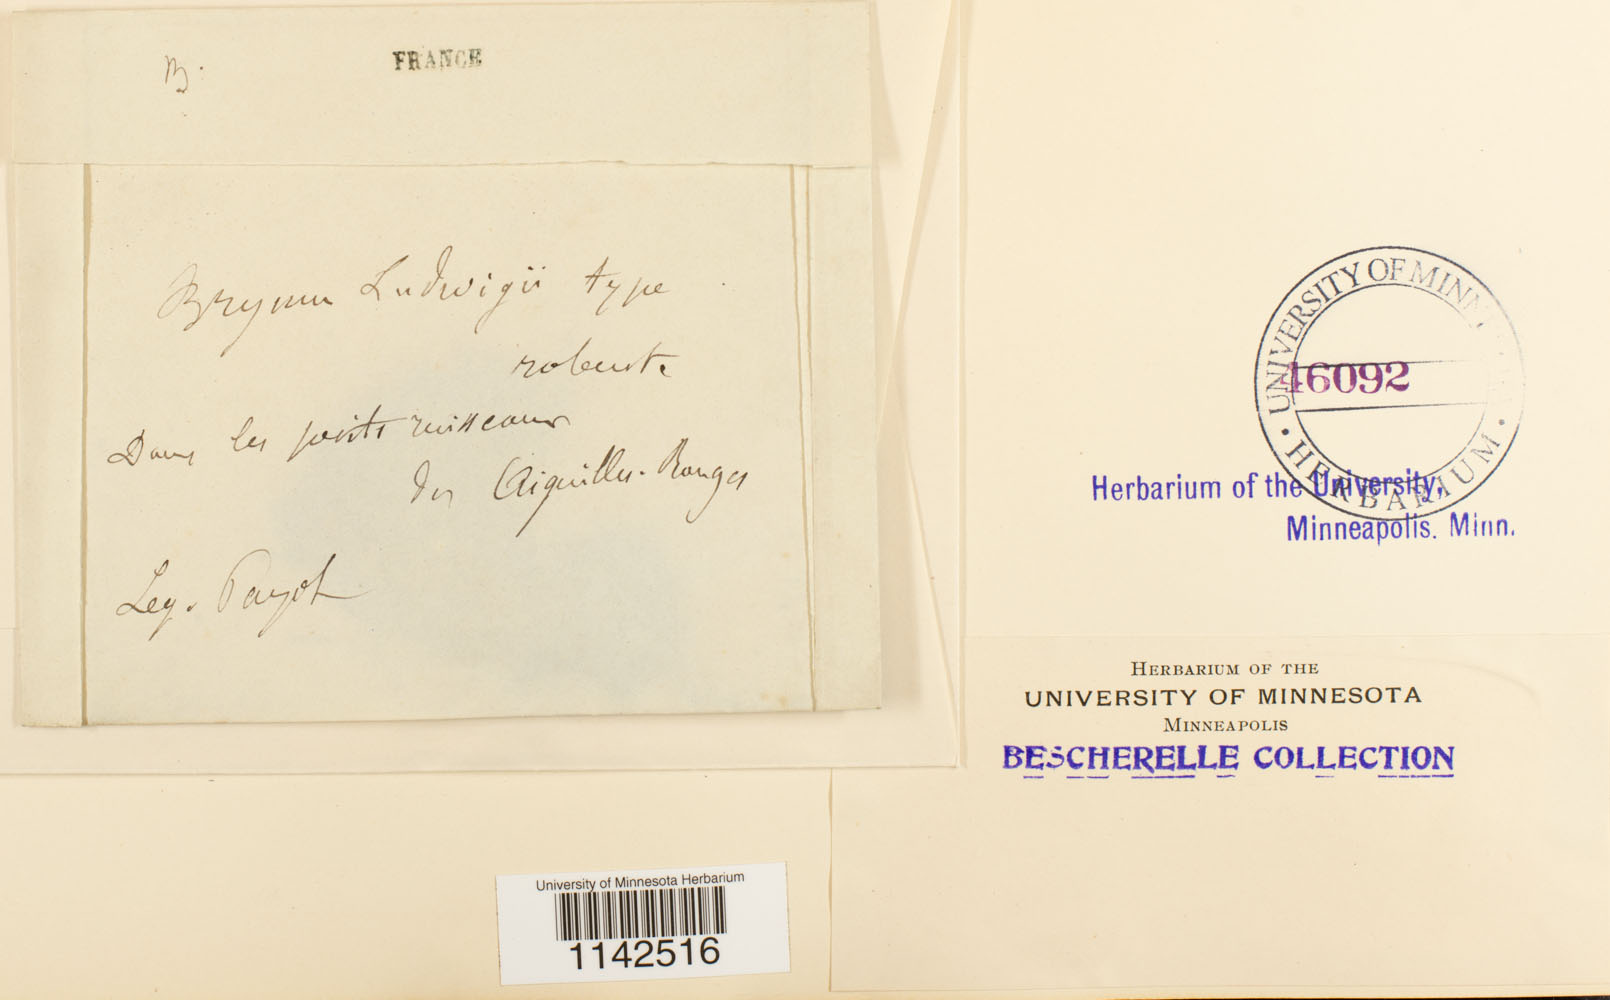 B.
FRANCE
Bryum Ludwigii type
robuste
Dans les petits ruisseaux
des Aiguilles-Rouges
Leg. Payot
UNIVERSITY OF MINN
46092
HERBARIUM
Herbarium of the University,
Minneapolis. Minn.
HERBARIUM OF THE
UNIVERSITY OF MINNESOTA
MINNEAPOLIS
BESCHERELLE COLLECTION
University of Minnesota Herbarium
1142516